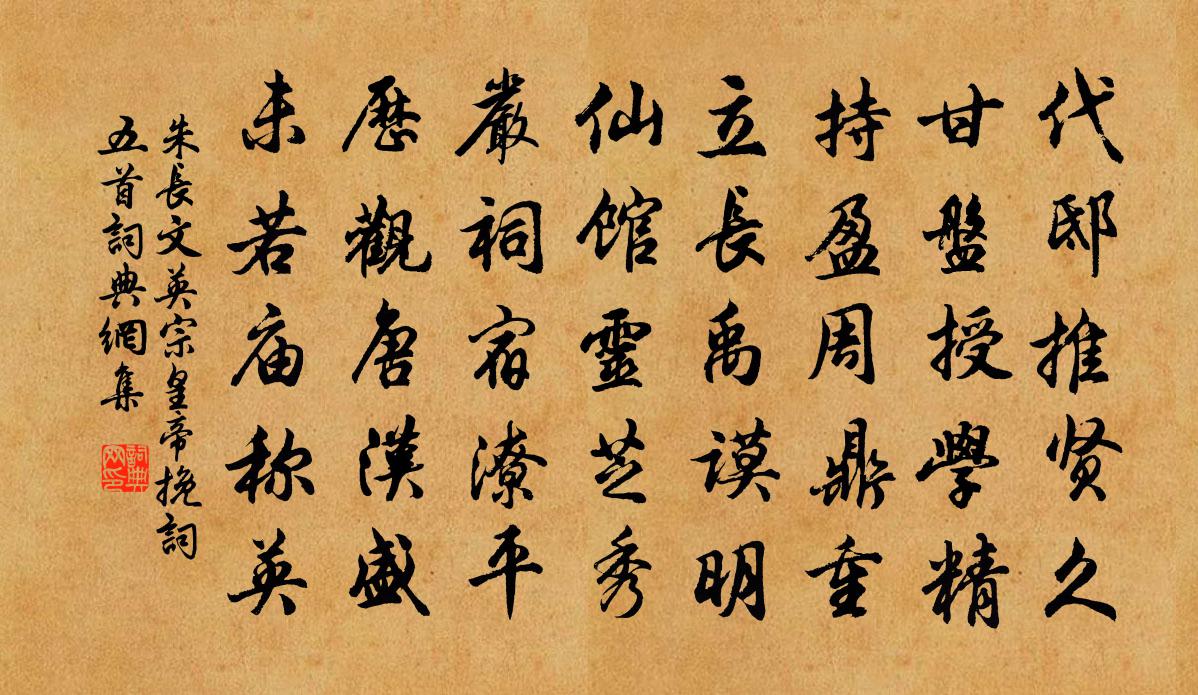 代邸推贤久
甘盤授學精
持盈周鼎重
立長禹謨明
仙馆靈芝秀
嚴祠宿潦平
歷觀唐漢盛
未若庙称英
朱長文英宗皇帝挽詞
五首詞典網集
詞典
网印